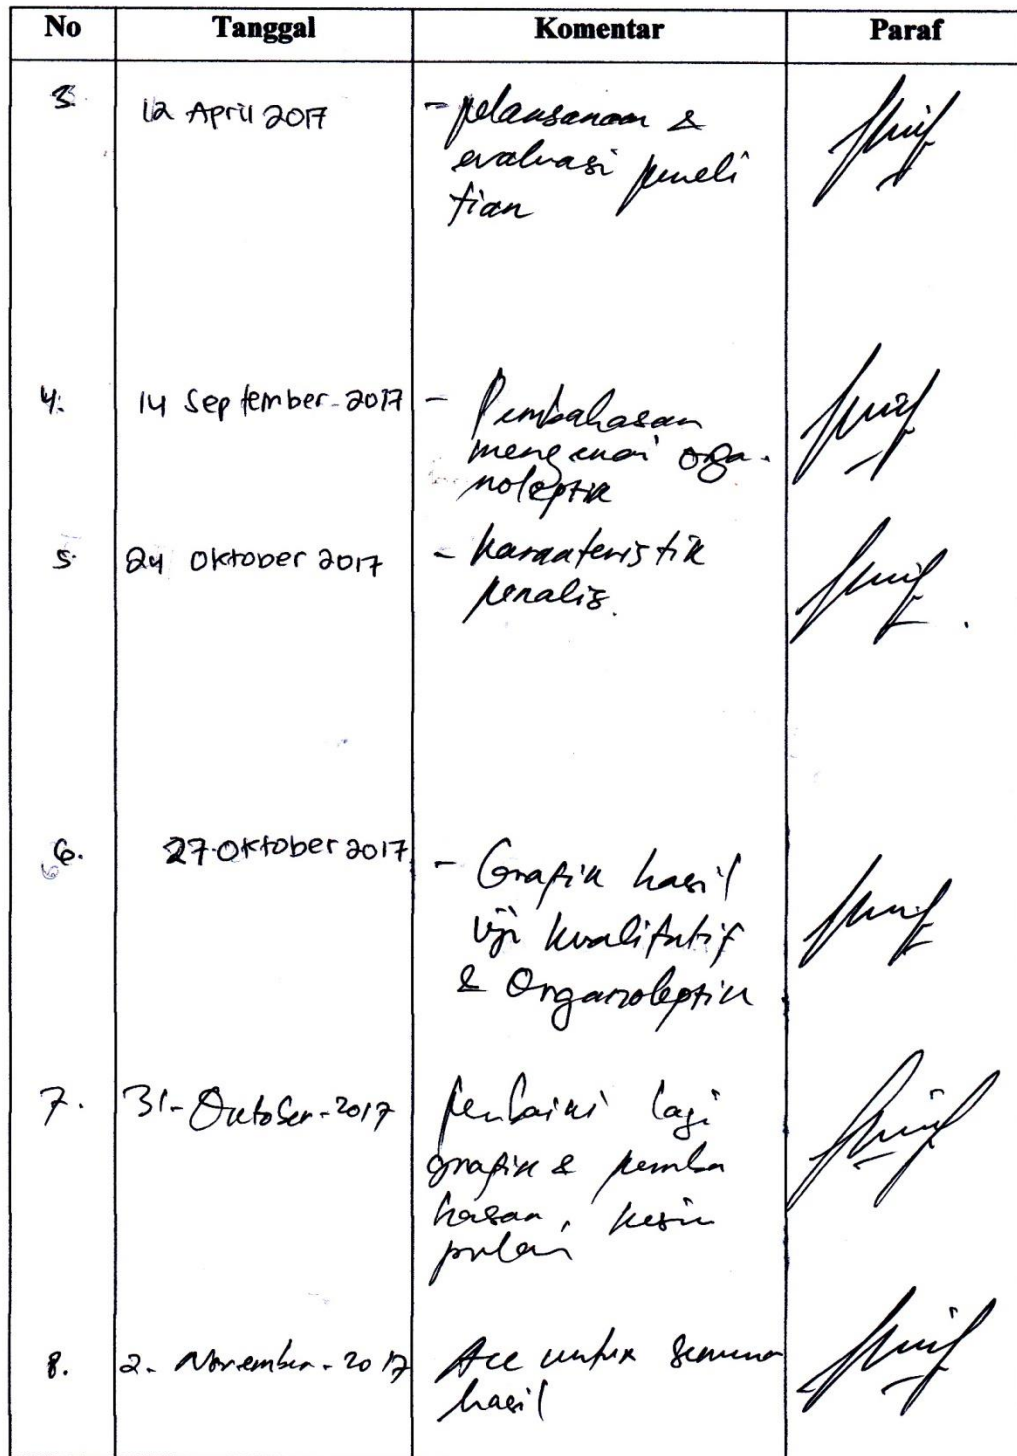 No Tanggal Komentar Paraf
3. 12 April 2017 - pelaksanaan &
evaluasi peneli
tian
4. 14 September-2017 - Pembahasan
mengenai orga-
noleptik
5. 24 Oktober 2017 - karakteristik
panelis.
6. 27 Oktober 2017 - Grafik hasil
uji kualitatif
& Organoleptik
7. 31-Oktober-2017 perbaiki lagi
grafik & pemba
hasan, kesim
pulan
8. 2-November-2017 Acc untuk seminar
hasil